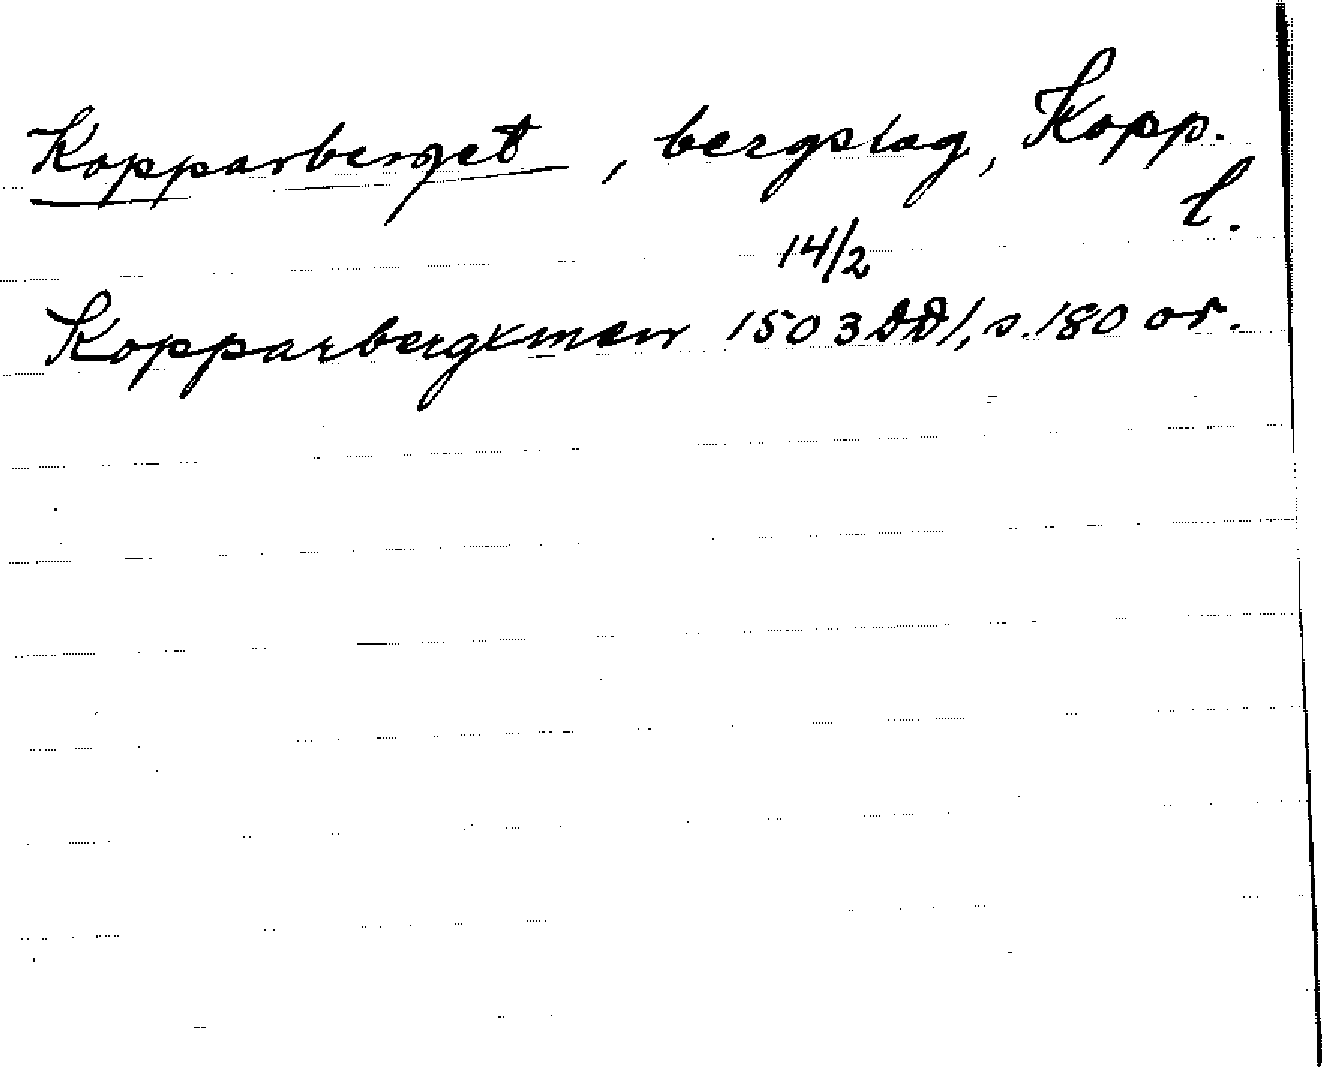 Kopparberget, bergslag, Kopp.
l.
14/2
Kopparbergxmen 1503 DD1, s. 180 or.